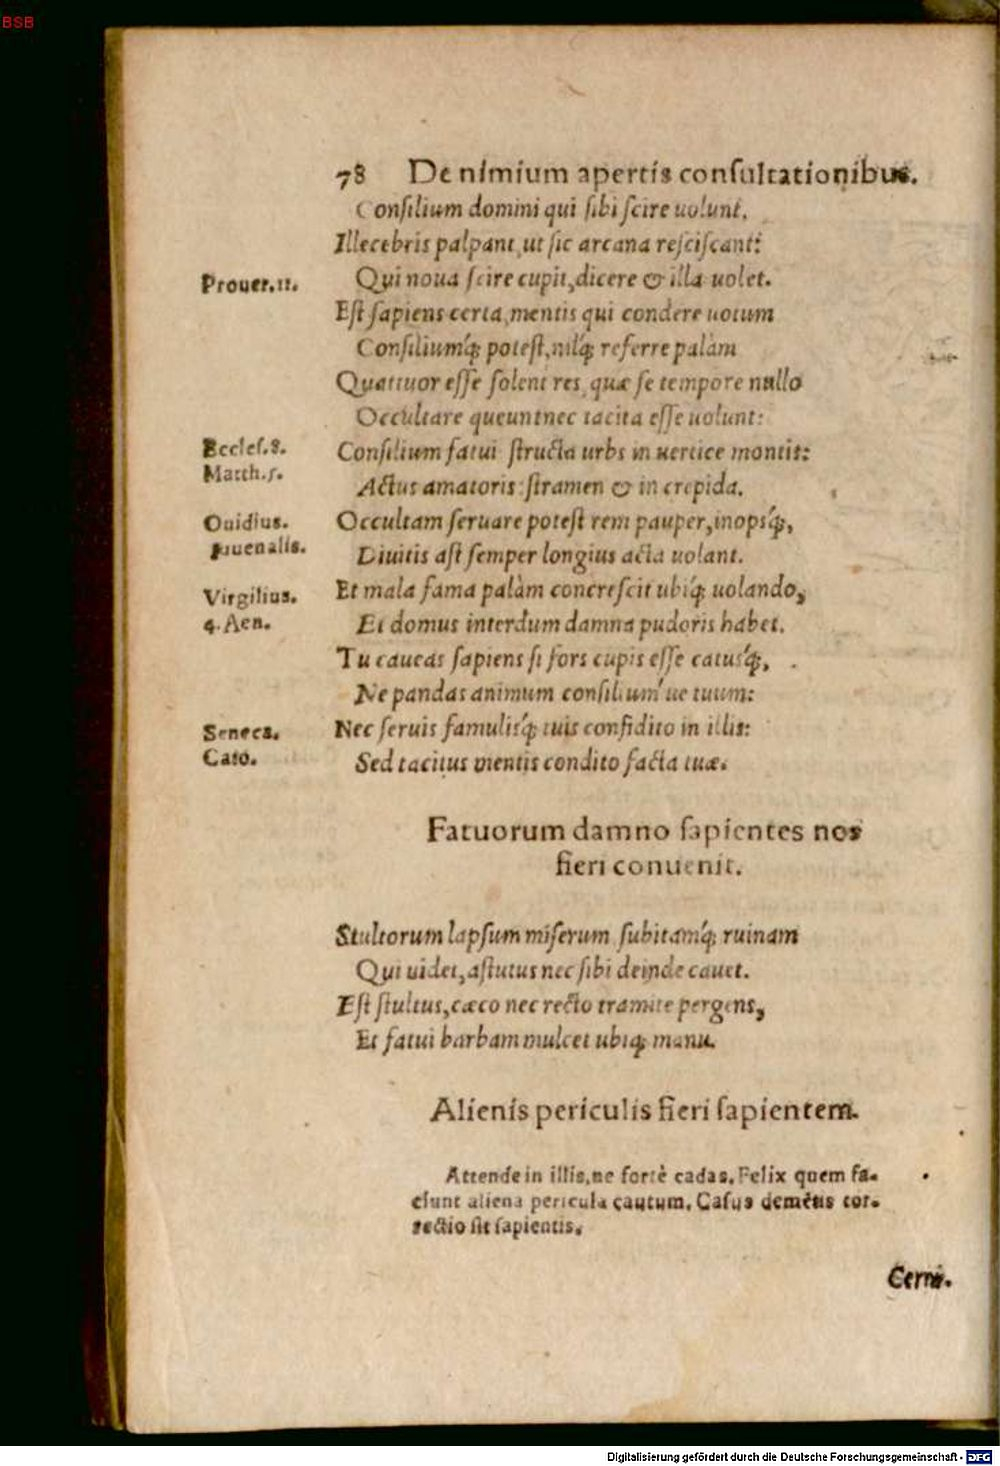 BSB
78 De nimium apertis conſultationibus.
Conſilium domini qui ſibi ſcire uolunt.
Illecebris palpant, ut ſic arcana reſciſcant:
Prouer.11.
Qui noua ſcire cupit, dicere & illa uolet.
Eſt ſapiens certa, mentis qui condere uotum
Conſiliumq́; poteſt, nilq́; referre palàm
Quattuor eſſe ſolent res, quæ ſe tempore nullo
Occultare queunt nec tacita eſſe uolunt:
Eccleſ.8.
Conſilium fatui ſtructa urbs in uertice montis:
Matth.5.
Actus amatoris: ſtramen & in crepida.
Ouidius.
Occultam ſeruare poteſt rem pauper, inopsq́;,
Iuuenalis.
Diuitis aſt ſemper longius acta uolant.
Virgilius.
Et mala fama palàm concreſcit ubiq́; uolando,
4. Aen.
Et domus interdum damna pudoris habet.
Tu caueas ſapiens ſi fors cupis eſſe catusq́;,
Ne pandas animum conſilium ue tuum:
Seneca.
Nec ſeruis famulisq́; tuis confidito in illis:
Cato.
Sed tacitus mentis condito facta tuæ.
Fatuorum damno ſapientes nos
fieri conuenit.
Stultorum lapſum miſerum ſubitamq́; ruinam
Qui uidet, aſtutus nec ſibi deinde cauet.
Eſt ſtultus, cæco nec recto tramite pergens,
Et fatui barbam mulcet ubiq; manu.
Alienis periculis fieri ſapientem.
Attende in illis, ne fortè cadas. Felix quem fa-
ciunt aliena pericula cautum. Caſus demẽtis cor-
rectio ſit ſapientis.
Digitalisierung gefördert durch die Deutsche Forschungsgemeinschaft - DFG